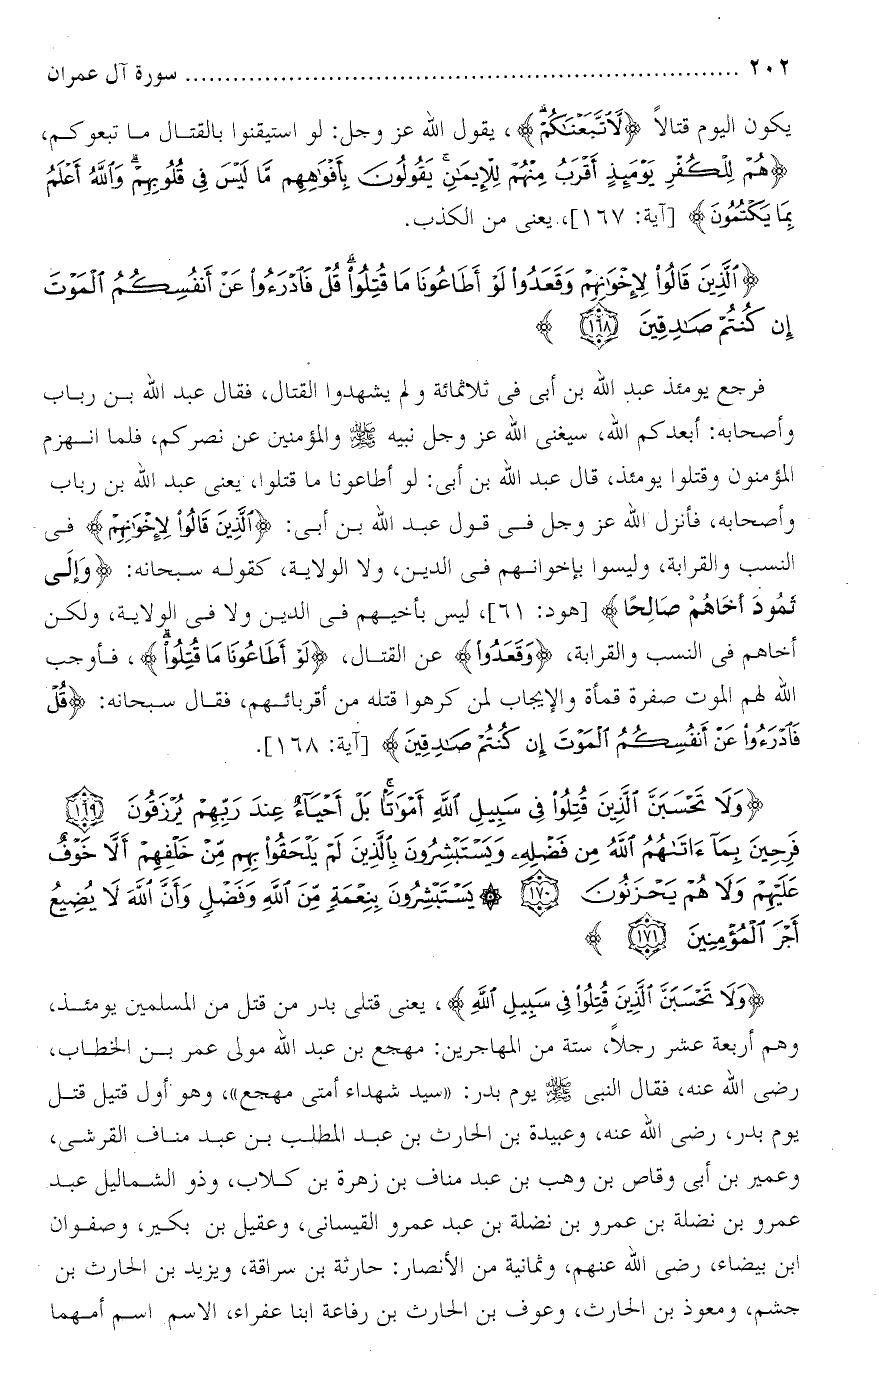 ٢٠٢ ........................................................................ سورة آل عمران
يكون اليوم قتالاً ﴿لَاتَّبَعْنَاكُمْ﴾، يقول الله عز وجل: لو استيقنوا بالقتال ما تبعوكم،
﴿هُمْ لِلْكُفْرِ يَوْمَئِذٍ أَقْرَبُ مِنْهُمْ لِلْإِيمَانِ يَقُولُونَ بِأَفْوَاهِهِم مَّا لَيْسَ فِي قُلُوبِهِمْ وَاللَّهُ أَعْلَمُ
بِمَا يَكْتُمُونَ﴾ [آية: ١٦٧]، يعنى من الكذب.
﴿الَّذِينَ قَالُوا لِإِخْوَانِهِمْ وَقَعَدُوا لَوْ أَطَاعُونَا مَا قُتِلُوا قُلْ فَادْرَءُوا عَنْ أَنفُسِكُمُ الْمَوْتَ
إِن كُنتُمْ صَادِقِينَ ١٦٨ ﴾
فرجع يومئذ عبد الله بن أبى فى ثلاثمائة ولم يشهدوا القتال، فقال عبد الله بن رباب
وأصحابه: أبعدكم الله، سيغنى الله عز وجل نبيه ﷺ والمؤمنين عن نصركم، فلما انهزم
المؤمنون وقتلوا يومئذ، قال عبد الله بن أبى: لو أطاعونا ما قتلوا، يعنى عبد الله بن رباب
وأصحابه، فأنزل الله عز وجل فى قول عبد الله بن أبى: ﴿الَّذِينَ قَالُوا لِإِخْوَانِهِمْ﴾ فى
النسب والقرابة، وليسوا بإخوانهم فى الدين، ولا الولاية، كقوله سبحانه: ﴿وَإِلَى
ثَمُودَ أَخَاهُمْ صَالِحًا﴾ [هود: ٦١]، ليس بأخيهم فى الدين ولا فى الولاية، ولكن
أخاهم فى النسب والقرابة، ﴿وَقَعَدُوا﴾ عن القتال، ﴿لَوْ أَطَاعُونَا مَا قُتِلُوا﴾، فأوجب
الله لهم الموت صفرة قمأة والإيجاب لمن كرهوا قتله من أقربائهم، فقال سبحانه: ﴿قُلْ
فَادْرَءُوا عَنْ أَنفُسِكُمُ الْمَوْتَ إِن كُنتُمْ صَادِقِينَ﴾ [آية: ١٦٨].
﴿وَلَا تَحْسَبَنَّ الَّذِينَ قُتِلُوا فِي سَبِيلِ اللَّهِ أَمْوَاتًا بَلْ أَحْيَاءٌ عِندَ رَبِّهِمْ يُرْزَقُونَ ١٦٩
فَرِحِينَ بِمَا ءَاتَاهُمُ اللَّهُ مِن فَضْلِهِ وَيَسْتَبْشِرُونَ بِالَّذِينَ لَمْ يَلْحَقُوا بِهِم مِّنْ خَلْفِهِمْ أَلَّا خَوْفٌ
عَلَيْهِمْ وَلَا هُمْ يَحْزَنُونَ ١٧٠ ۞ يَسْتَبْشِرُونَ بِنِعْمَةٍ مِّنَ اللَّهِ وَفَضْلٍ وَأَنَّ اللَّهَ لَا يُضِيعُ
أَجْرَ الْمُؤْمِنِينَ ١٧١ ﴾
﴿وَلَا تَحْسَبَنَّ الَّذِينَ قُتِلُوا فِي سَبِيلِ اللَّهِ﴾، يعنى قتلى بدر من قتل من المسلمين يومئذ،
وهم أربعة عشر رجلاً، ستة من المهاجرين: مهجع بن عبد الله مولى عمر بن الخطاب،
رضى الله عنه، فقال النبى ﷺ يوم بدر: «سيد شهداء أمتى مهجع»، وهو أول قتيل قتل
يوم بدر، رضى الله عنه، وعبيدة بن الحارث بن عبد المطلب بن عبد مناف القرشى،
وعمير بن أبى وقاص بن وهب بن عبد مناف بن زهرة بن كلاب، وذو الشماليل عبد
عمرو بن نضلة بن عمرو بن نضلة بن عبد عمرو القيسانى، وعقيل بن بكير، وصفوان
ابن بيضاء، رضى الله عنهم، وثمانية من الأنصار: حارثة بن سراقة، ويزيد بن الحارث بن
جشم، ومعوذ بن الحارث، وعوف بن الحارث بن رفاعة ابنا عفراء، الاسم اسم أمهما